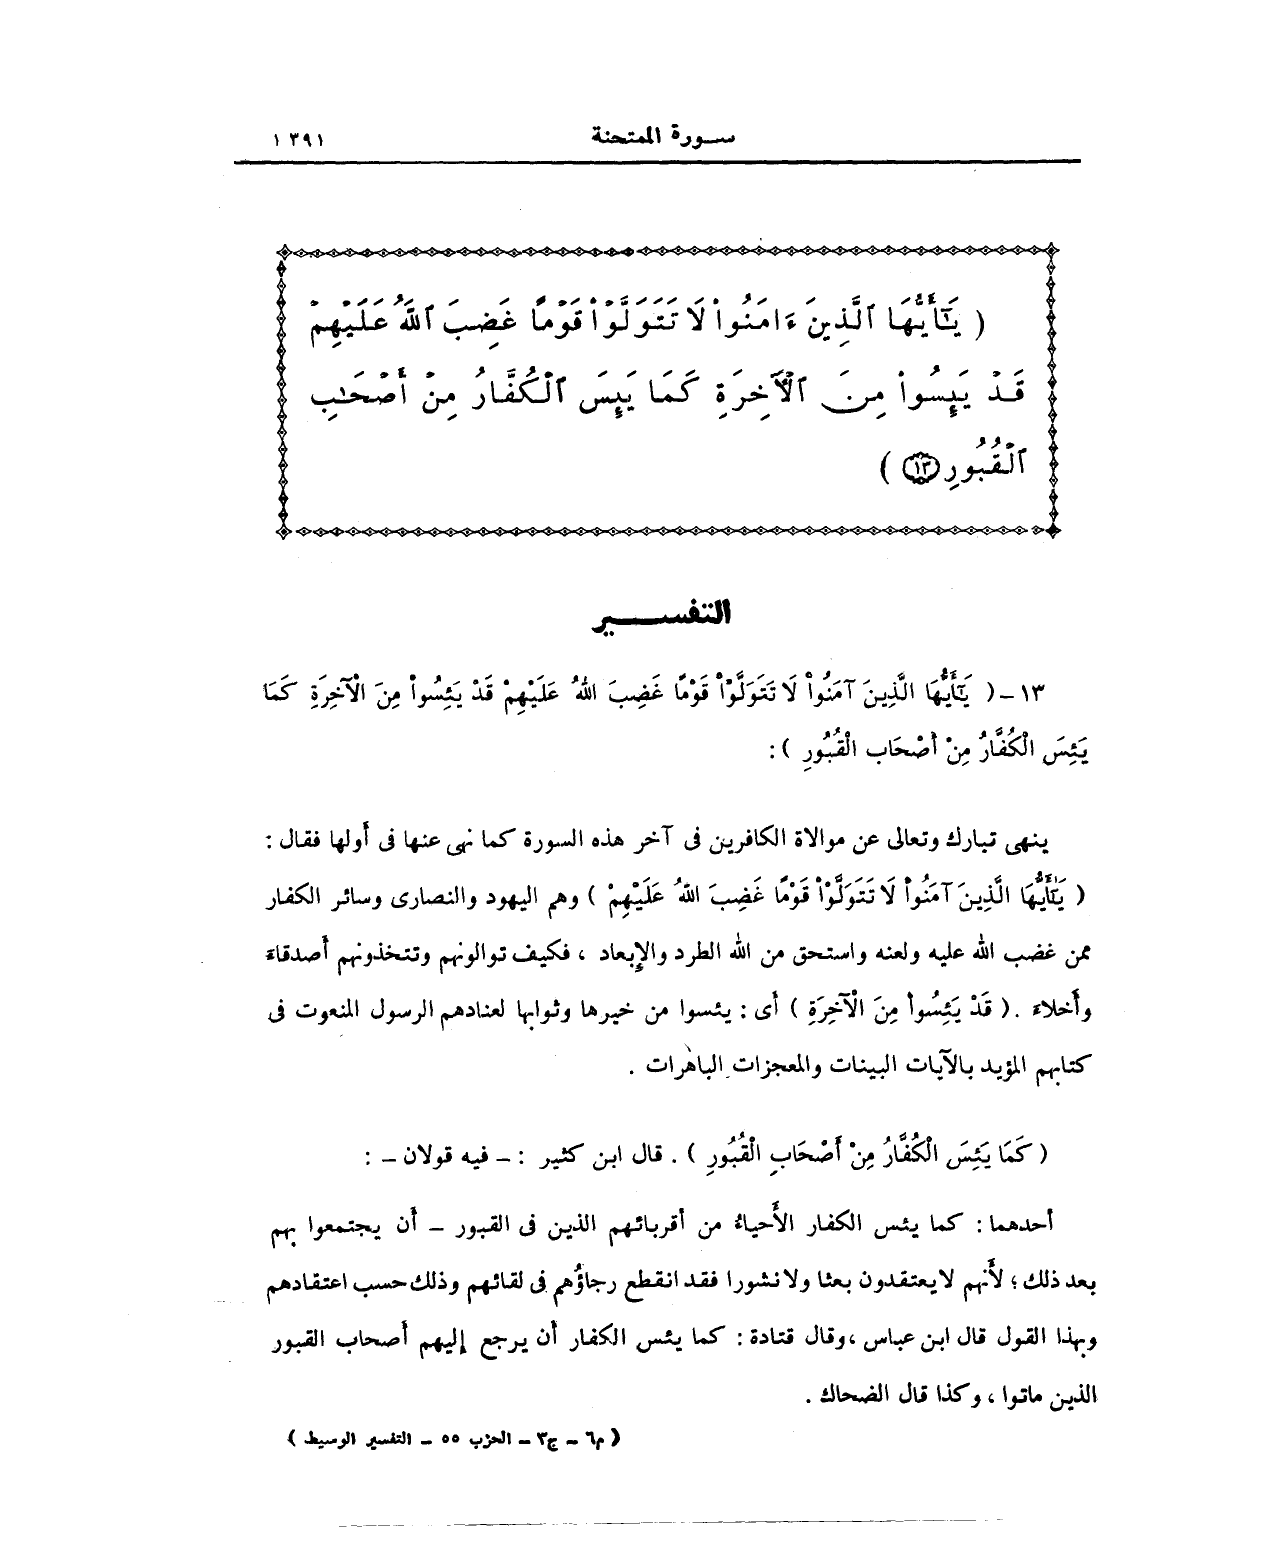 سورة الممتحنة ١٣٩١
( يَٰٓأَيُّهَا ٱلَّذِينَ ءَامَنُوا۟ لَا تَتَوَلَّوْا۟ قَوْمًا غَضِبَ ٱللَّهُ عَلَيْهِمْ
قَدْ يَئِسُوا۟ مِنَ ٱلْآخِرَةِ كَمَا يَئِسَ ٱلْكُفَّارُ مِنْ أَصْحَٰبِ
ٱلْقُبُورِ ١٣ )
التفسير
١٣ـ ( يَٰٓأَيُّهَا الَّذِينَ آمَنُواْ لَا تَتَوَلَّوْاْ قَوْمًا غَضِبَ اللهُ عَلَيْهِمْ قَدْ يَئِسُواْ مِنَ الْآخِرَةِ كَمَا
يَئِسَ الْكُفَّارُ مِنْ أَصْحَابِ الْقُبُورِ ) :
ينهى تبارك وتعالى عن موالاة الكافرين فى آخر هذه السورة كما نهى عنها فى أولها فقال :
( يَٰٓأَيُّهَا الَّذِينَ آمَنُواْ لَا تَتَوَلَّوْاْ قَوْمًا غَضِبَ اللهُ عَلَيْهِمْ ) وهم اليهود والنصارى وسائر الكفار
ممن غضب الله عليه ولعنه واستحق من الله الطرد والإبعاد ، فكيف توالونهم وتتخذونهم أصدقاء
وأخلاء . ( قَدْ يَئِسُواْ مِنَ الْآخِرَةِ ) أى : يئسوا من خيرها وثوابها لعنادهم الرسول المنعوت فى
كتابهم المؤيد بالآيات البينات والمعجزات الباهرات .
( كَمَا يَئِسَ الْكُفَّارُ مِنْ أَصْحَابِ الْقُبُورِ ) . قال ابن كثير : ـ فيه قولان ـ :
أحدهما : كما يئس الكفار الأحياءُ من أقربائهم الذين فى القبور ـ أن يجتمعوا بهم
بعد ذلك ؛ لأنهم لايعتقدون بعثا ولانشورا فقد انقطع رجاؤهم فى لقائهم وذلك حسب اعتقادهم
وبهذا القول قال ابن عباس ، وقال قتادة : كما يئس الكفار أن يرجع إليهم أصحاب القبور
الذين ماتوا ، وكذا قال الضحاك .
( م٦ ـ ج٣ ـ الحزب ٥٥ ـ التفسير الوسيط )